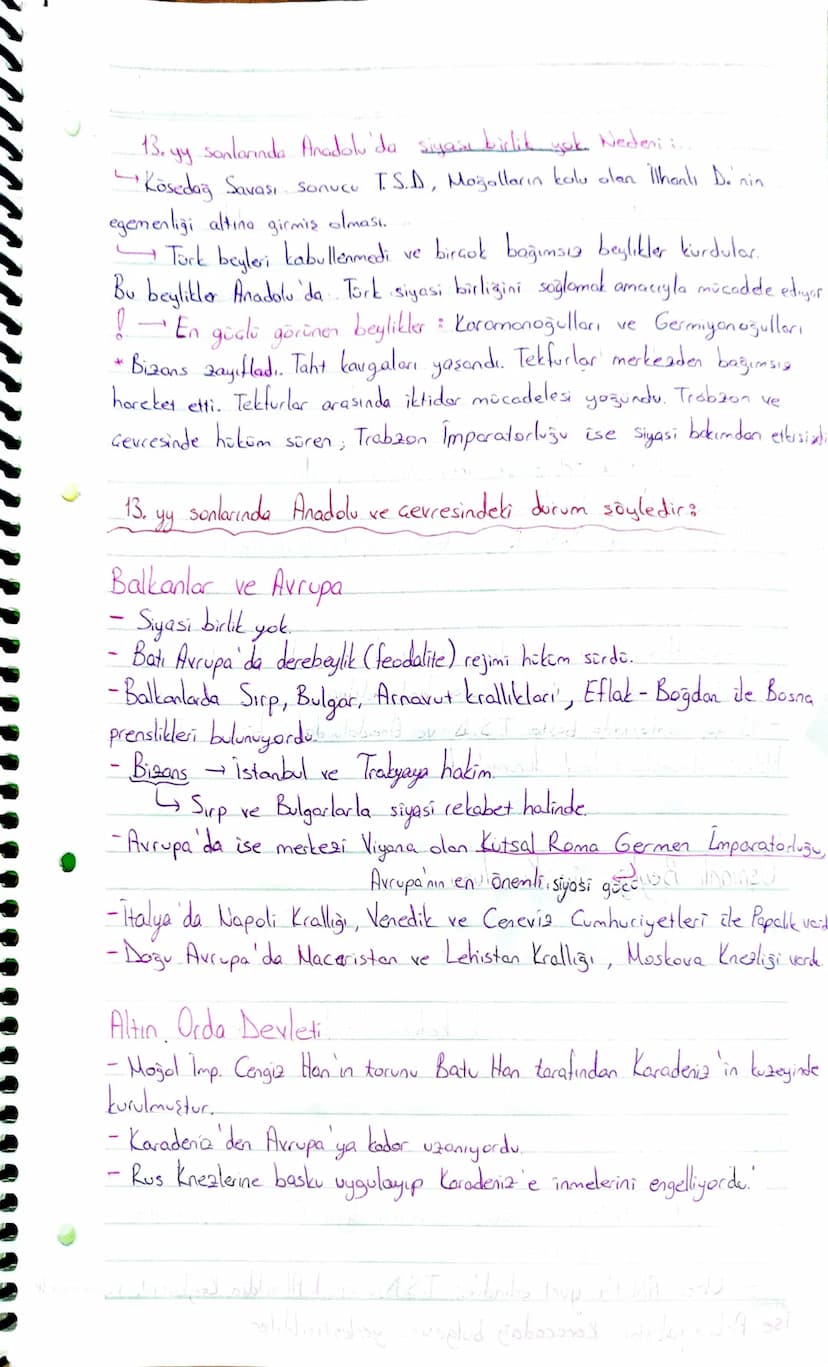 13. yy sonlarında Anadolu'da siyasi birlik yok. Nedeni:
↳ Kösedağ Savaşı sonucu T.S.D, Moğolların kolu olan İlhanlı D.'nin
egemenliği altına girmiş olması.
↳ Türk beyleri kabullenmedi ve birçok bağımsız beylikler kurdular.
Bu beylikler Anadolu'da Türk siyasi birliğini sağlamak amacıyla mücadele ediyor
! → En güçlü görünen beylikler: Karamanoğulları ve Germiyanoğulları
* Bizans zayıfladı. Taht kavgaları yaşandı. Tekfurlar merkezden bağımsız
hareket etti. Tekfurlar arasında iktidar mücadelesi yoğundu. Trabzon ve
çevresinde hüküm süren; Trabzon İmparatorluğu ise siyasi bakımdan etkisizdi
13. yy sonlarında Anadolu ve çevresindeki durum şöyledir:
Balkanlar ve Avrupa
- Siyasi birlik yok.
- Batı Avrupa'da derebeylik (feodalite) rejimi hüküm sürdü.
- Balkanlarda Sırp, Bulgar, Arnavut krallıkları, Eflak - Boğdan ile Bosna
prenslikleri bulunuyordu.
- Bizans → İstanbul ve Trakyaya hakim.
↳ Sırp ve Bulgarlarla siyasi rekabet halinde.
- Avrupa'da ise merkezi Viyana olan Kutsal Roma Germen İmparatorluğu,
Avrupa'nın en önemli siyasi gücü
- İtalya'da Napoli Krallığı, Venedik ve Ceneviz Cumhuriyetleri ile Papalık vardı
- Doğu Avrupa'da Macaristan ve Lehistan Krallığı, Moskova Knezliği vardı.
Altın Orda Devleti
- Moğol İmp. Cengiz Han'ın torunu Batu Han tarafından Karadeniz'in kuzeyinde
kurulmuştur.
- Karadeniz'den Avrupa'ya kadar uzanıyordu.
- Rus Knezlerine baskı uygulayıp Karadeniz'e inmelerini engelliyordu.